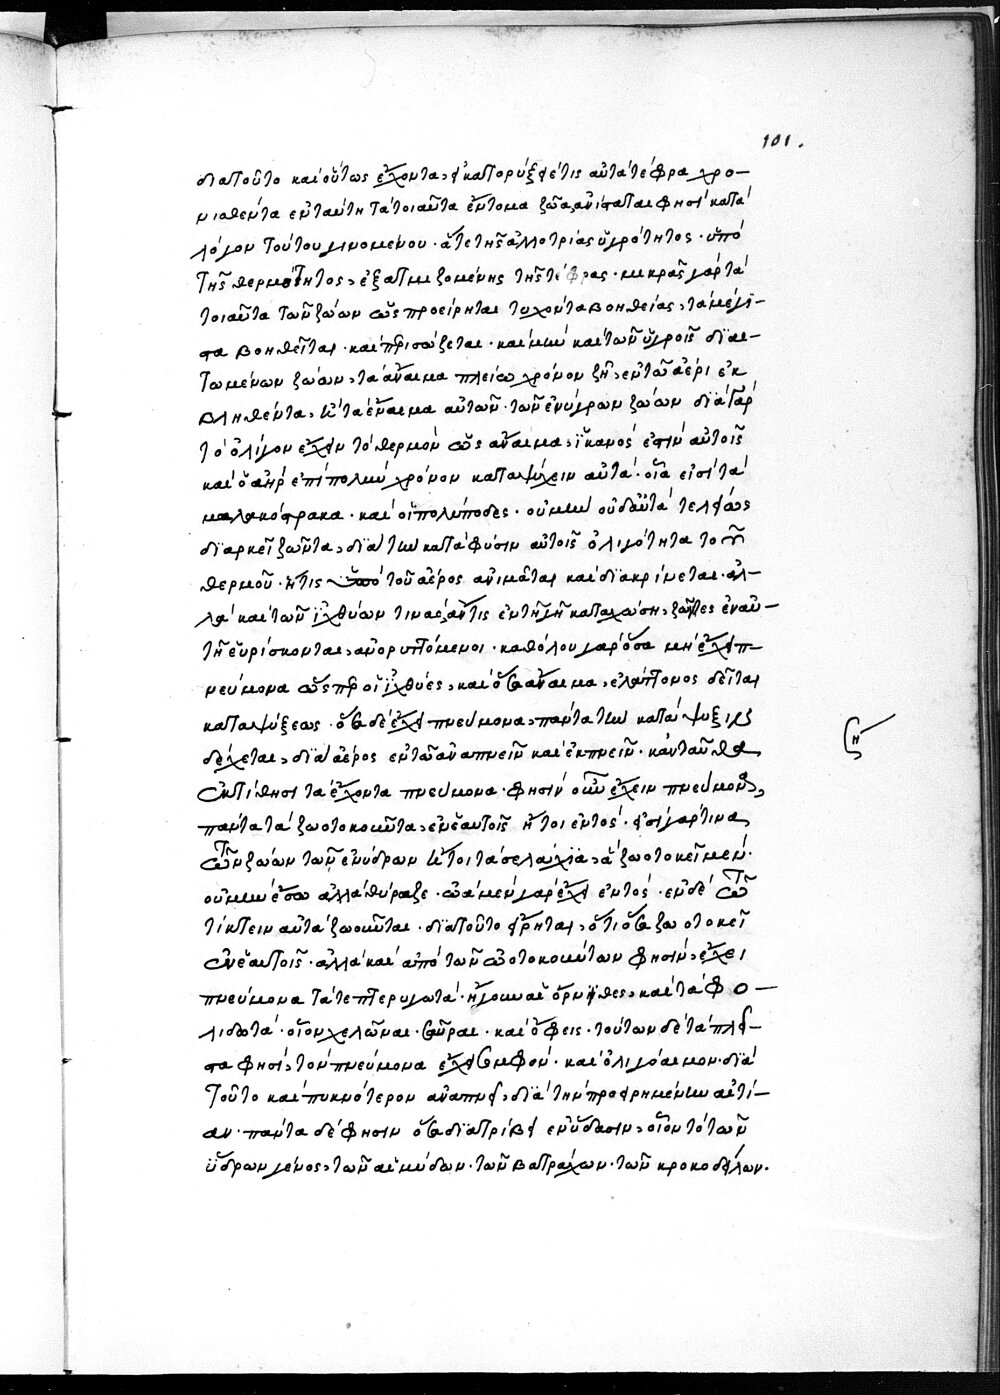 101.
διατοῦτο καὶ οὕτως ἔχοντα, εἰ κατορύξει τις αὐτὰ τέφρα χρο-
νισθέντα ἐν ταύτη τὰ τοιαῦτα ἔντομα ζῶα, ἀνίσταται φησὶ κατὰ
λόγον τούτου γινομένου. ἅτε τῆς ἀλλοτρίας ὑγρότητος. ὑπὸ
τῆς θερμότητος, ἐξατμιζομένης τῆς τέφρας. μικρᾶς γὰρ τὰ
τοιαῦτα τῶν ζώων ὡς προείρηται τυχόντα βοηθείας, τὰ μέγι-
στα βοηθεῖται. καὶ περισώζεται. καὶ μὴν καὶ τῶν ὑγροῖς διαι-
τωμένων ζώων, τὰ ἄναιμα πλείω χρόνον ζῆ, ἐν τῶ ἀέρι ἐκ
βληθέντα, ἢ τὰ ἔναιμα αὐτῶν. τῶν ἐνύγρων ζώων διὰ γὰρ
τὸ ὀλίγον ἔχειν τὸ θερμὸν ὡς ἄναιμα, ἱκανός ἐστιν αὐτοῖς
καὶ ὁ ἀὴρ ἐπὶ πολὺν χρόνον καταψύχειν αὐτά. οἷα εἰσὶ τὰ
μαλακόστρακα. καὶ οἱ πολύποδες. οὐ μὴν οὐδ' αὐτὰ τελέως
διαρκεῖ ζῶντα, διὰ τὴν κατὰ φύσιν αὐτοῖς ὀλιγότητα τοῦ
θερμοῦ. ἥτις ὑπὸ τοῦ ἀέρος ἀνιμᾶται καὶ διακρίνεται. ἀλ-
λὰ καὶ τῶν ἰχθύων τινὰς, ἄν τις ἐν τῆ γῆ καταχώση, ζῶντες ἐν αὐ-
τῆ εὑρίσκονται, ἀνορυττόμενοι. καθόλου γὰρ ὅσα μὴ ἔχει π-
νεύμονα ὥσπερ οἱ ἰχθύες, καὶ ὅσα ἄναιμα, ἐλάττονος δεῖται
καταψύξεως. ὅσα δὲ ἔχει πνεύμονα, πάντα τὴν κατάψυξιν
δέχεται, διὰ ἀέρος ἐν τῶ ἀναπνεῖν καὶ ἐκπνεῖν. κἀνταῦθα
ἐκτίθησι τὰ ἔχοντα πνεύμονα. φησὶν οὖν ἔχειν πνεύμονα,
πάντα τὰ ζωοτοκοῦντα, ἐν ἑαυτοῖς ἤτοι ἐντός. εἰσὶ γάρ τινα
τῶν ζώων τῶν ἐνύδρων ἤτοι τὰ σελάχια, ἃ ζωοτοκεῖ μέν.
οὐ μὴν ἔσω ἀλλὰ θύραζε. ὠὰ μὲν γὰρ ἔχει ἐντός. ἐν δὲ τῶ
τίκτειν αὐτὰ ζωοῦται. διατοῦτο εἴρηται, ὅτι ὅσα ζωοτοκεῖ
ἐν ἑαυτοῖς. ἀλλὰ καὶ ἀπὸ τῶν ὠοτοκούντων φησὶν, ἔχει
πνεύμονα τά τε πτερυγωτὰ. ἤγουν αἱ ὄρνιθες, καὶ τὰ φο-
λιδωτά. οἷον χελῶναι. σαῦραι. καὶ ὄφεις. τούτων δὲ τὰ πλεῖ-
στα φησὶ, τὸν πνεύμονα ἔχει σομφόν. καὶ ὀλίγαιμον. διὰ
τοῦτο καὶ πυκνότερον ἀναπνεῖ, διὰ τὴν προειρημένην αἰτί-
αν. πάντα δέ φησιν ὅσα διατρίβει ἐν ὕδασιν, οἷον τὸ τῶν
ὕδρων γένος, τῶν αἱμύδων. τῶν βατράχων. τῶν κροκοδείλων.